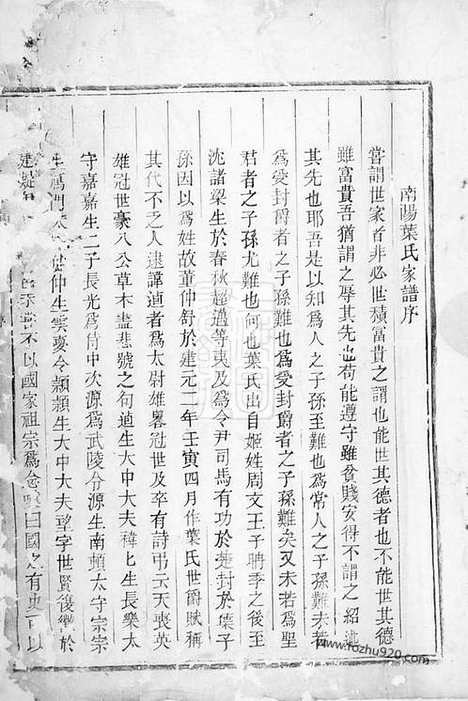 南陽葉氏家譜序
嘗謂世家者非必世積富貴之謂也能世其德者也不能世其德
雖富貴吾猶謂之辱其先也茍能遵守雖貧賤安得不謂之紹
其先也耶吾是以知為人之子孫至難也為常人之子孫難未若
為受封爵者之子孫難也為受封爵者之子孫難矣又未若為聖
君者之子孫尤難也何也葉氏出自姬姓周文王子聃季之後至
沈諸梁生於春秋超邁等夷及為令尹司馬有功於楚封於葉子
孫因以為姓故董仲舒於建元二年壬寅四月作葉氏世爵賦稱
其代不乏人逮諄滇者為太尉雄畧冠世及卒有詩弔云天喪英
雄冠世豪八公草木盡悲號之句廸生大中大夫禕禕生長樂太
守嘉嘉生二子長光為侍中次源為武陵令源生南頓太守宗宗
生鴈門太 仲生雲夢令顥顥生大中大夫望字世賢復 於
建 不以國家祖宗為念 曰國之有史 以
www.fozhu920.com